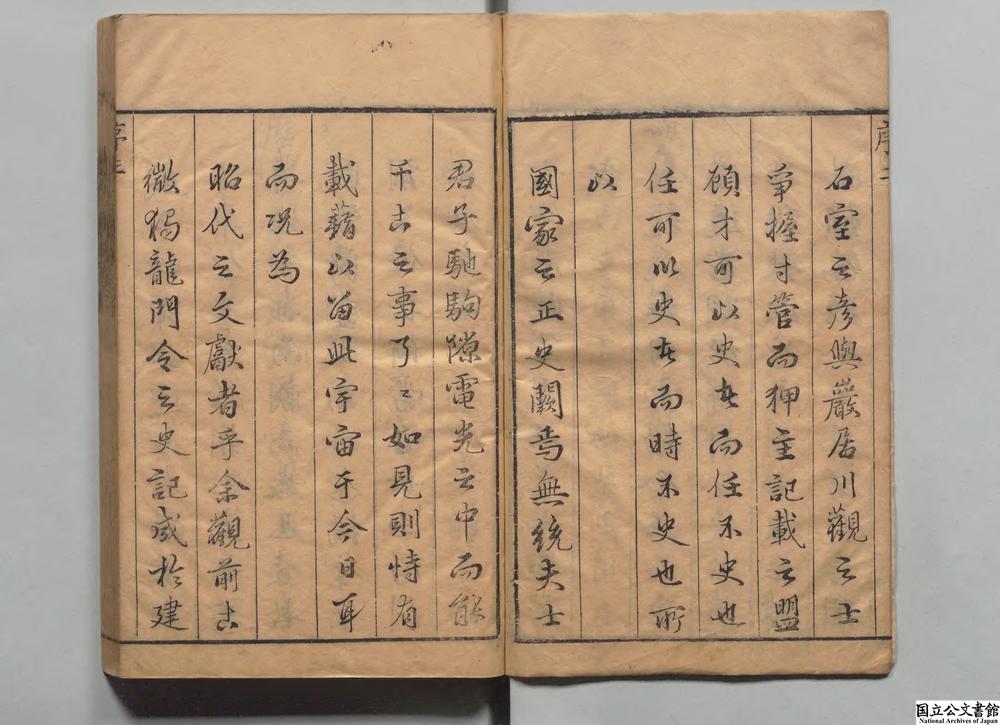 序二
石室之彦與巖居川觀之士
爭握寸管而狎主記載之盟
顧才可以史者而任不史也
任可以史者而時不史也所
以
國家之正史闕焉無統夫士
君子馳駒隙電光之中而能
千古之事了了如見則恃有
載藉以留此宇宙于今日耳
而况為
昭代之文獻者乎余觀前古
徵獨龍門令之史記成於建
序三
国立公文書館
National Archives of Japan